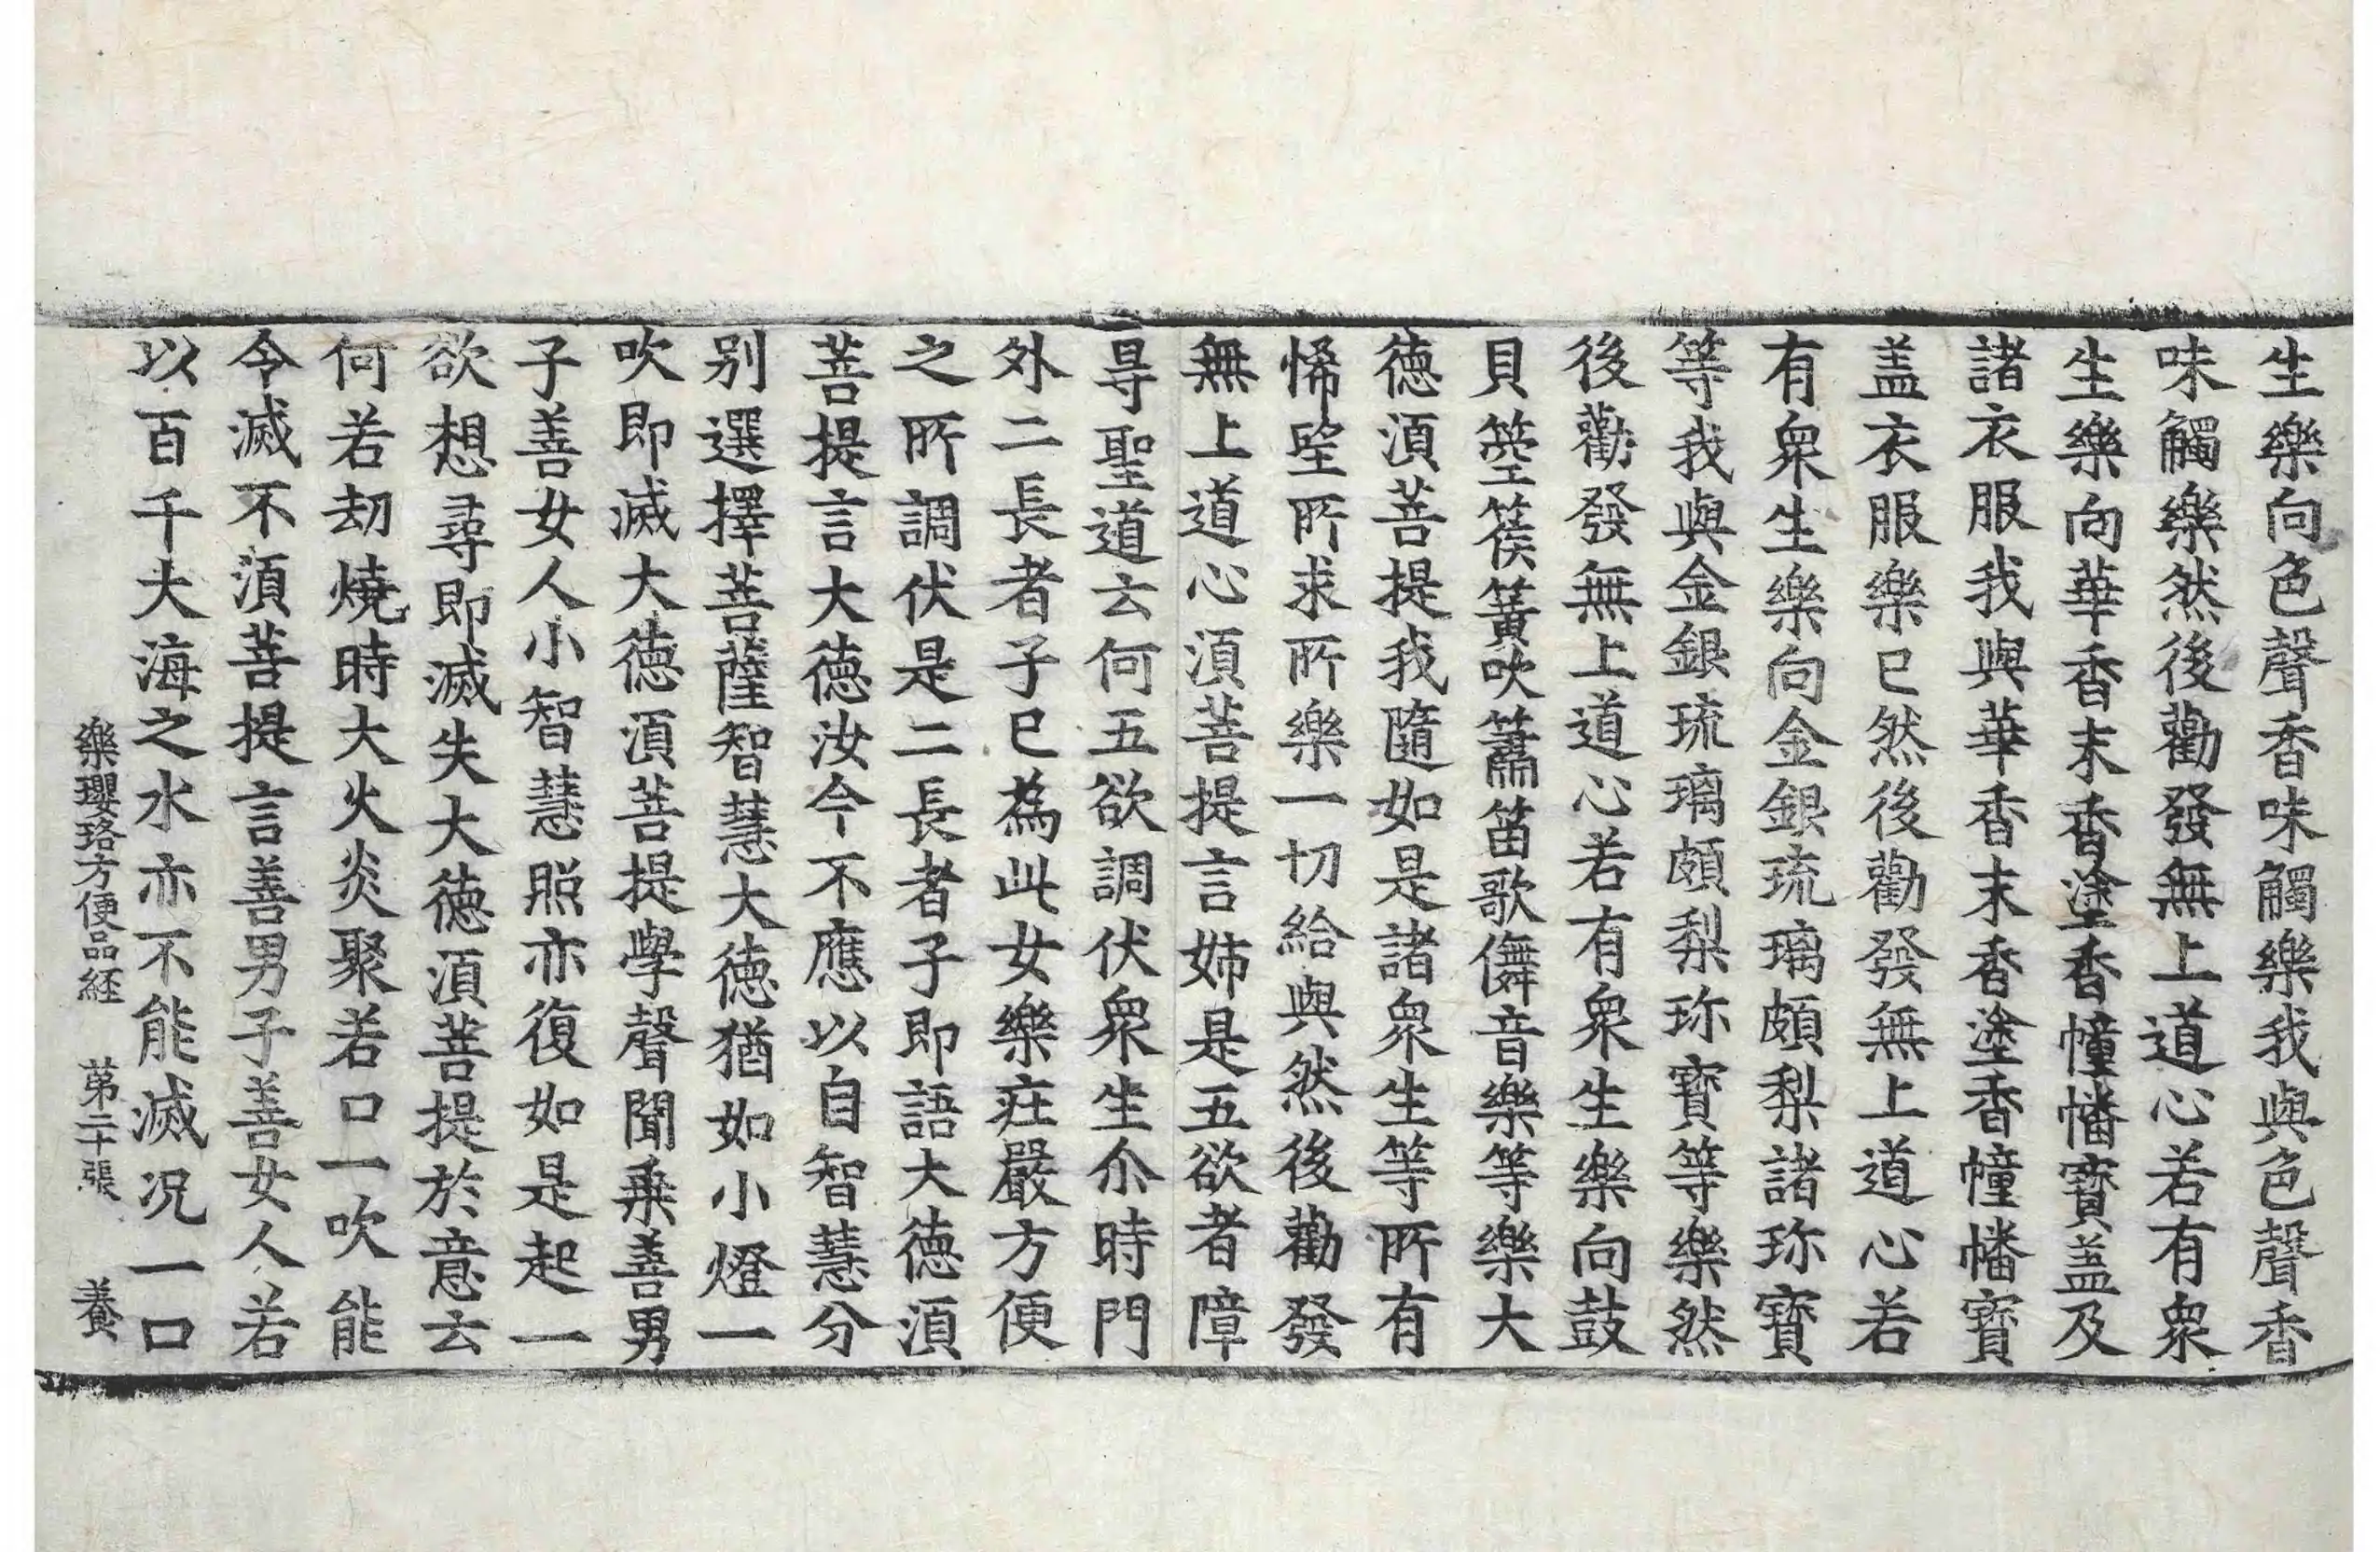 生樂向色聲香味觸樂我與色聲香
味觸樂然後勸發無上道心若有衆
生樂向華香末香塗香幢幡寶盖及
諸衣服我與華香末香塗香幢幡寶
盖衣服樂已然後勸發無上道心若
有衆生樂向金銀琉璃頗梨諸珎寶
等我與金銀琉璃頗梨珎寶等樂然
後勸發無上道心若有衆生樂向鼓
貝箜篌簧吹簫笛歌儛音樂等樂大
德湏菩提我隨如是諸衆生等所有
悕望所求所樂一切給與然後勸發
無上道心湏菩提言姊是五欲者障
㝵聖道云何五欲調伏衆生尒時門
外二長者子已為此女樂莊嚴方便
之所調伏是二長者子即語大德湏
菩提言大德汝今不應以自智慧分
别選擇菩薩智慧大德猶如小燈一
吹即滅大德湏菩提學聲聞乗善男
子善女人小智慧照亦復如是起一
欲想尋即滅失大德湏菩提於意云
何若劫燒時大火炎聚若口一吹能
令滅不湏菩提言善男子善女人若
以百千大海之水亦不能滅况一口
樂瓔珞方便品経 苐二十張 養